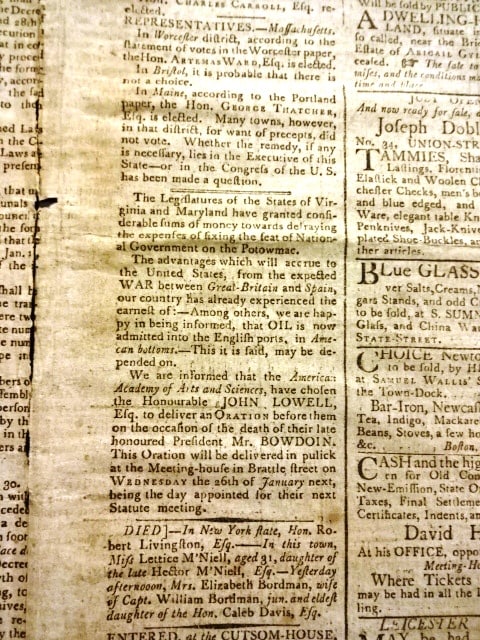 CHARLES CARROLL, Esq. re-
elected.
REPRESENTATIVES.—Massachusetts.
In Worcester district, according to the
statement of votes in the Worcester paper,
the Hon. ARTEMAS WARD, Esq. is elected.
In Bristol, it is probable that there is
not a choice.
In Maine, according to the Portland
paper, the Hon. GEORGE THATCHER,
Esq. is elected. Many towns, however,
in that district, for want of precepts, did
not vote. Whether the remedy, if any
is necessary, lies in the Executive of this
State—or in the Congress of the U. S.
has been made a question.
The Legislatures of the States of Vir-
ginia and Maryland have granted consi-
derable sums of money towards defraying
the expenses of fixing the seat of Nation-
al Government on the Potowmac.
The advantages which will accrue to
the United States, from the expected
WAR between Great-Britain and Spain,
our country has already experienced the
earnest of:—Among others, we are hap-
py in being informed, that OIL is now
admitted into the English ports, in Ame-
can bottoms.—This it is said, may be de-
pended on.
We are informed that the American
Academy of Arts and Sciences, have chosen
the Honourable JOHN LOWELL,
Esq. to deliver an ORATION before them
on the occasion of the death of their late
honoured President, Mr. BOWDOIN.
This Oration will be delivered in pulick
at the Meeting-house in Brattle street on
WEDNESDAY the 26th of January next,
being the day appointed for their next
Statute meeting.
DIED]—In New York state, Hon. Ro-
bert Livingston, Esq.—In this town,
Miss Lettice M'Niell, aged 31, daughter of
the late Hector M'Niell, Esq.—Yesterday
afternooon, Mrs. Elizabeth Bordman, wife
of Capt. William Bordman, jun. and eldest
daughter of the Hon. Caleb Davis, Esq.
ENTERED, at the CUTSOM-HOUSE,
Will be sold by PUBLIC
A DWELLING-H
LAND, situate
so called, near the Bri
Estate of ABIGAIL
ceased. The sale to
mises, and the conditions ma
time and place
JUST OPEN
And now ready for sale,
Joseph Dobl
No. 34, UNION-STR
TAMMIES, Sha
Lastings, Florenti
Elastick and Woolen C
chester Checks, men's b
and blue edged, and
Ware, elegant table Kn
Penknives, Jack-Knive
plated Shoe-Buckles, an
ther articles.
Blue GLASS
ver Salts, Creams,
gars Stands, and odd C
to be sold, at S. SUMN
Glass, and China Wa
STATE-STREET.
CHOICE Newto
to be sold, by H
at SAMUEL WALLIS'S
the Town-Dock.
Bar-Iron, Newcas
Tea, Indigo, Mackare
Beans, Stoves, a few ho
&c. Boston,
CASH and the hig
en for Old Con
New-Emission, State O
Taxes, Final Settleme
Certificates, Indents, an
David H
At his OFFICE, oppo
Meeting-Ho
Where Tickets
may be had in all the
ling.
LEICESTER